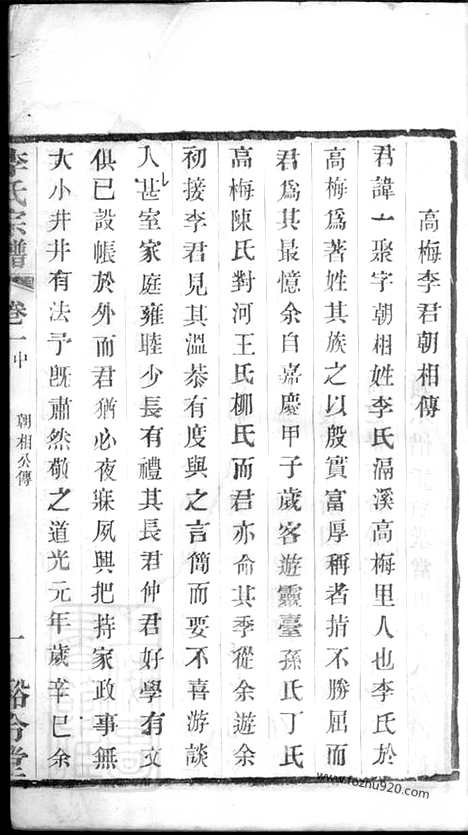 高梅李君朝相傳
君諱一聚字朝相姓李氏滆溪高梅里人也李氏於
高梅爲著姓其族之以殷實富厚稱者指不勝屈而
君爲其最憶余自嘉慶甲子歲客遊靈臺孫氏丁氏
高梅陳氏對河王氏柳氏而君亦命其季從余遊余
初接李君見其溫恭有度與之言簡而要不喜游談
入其室家庭雍睦少長有禮其長君仲君好學有文
俱已設帳於外而君猶必夜寐夙興把持家政事無
大小井井有法予旣肅然敬之道光元年歲辛巳余
李氏宗譜 卷一中 朝相公傳 一 裕合堂
www.fozhu920.com